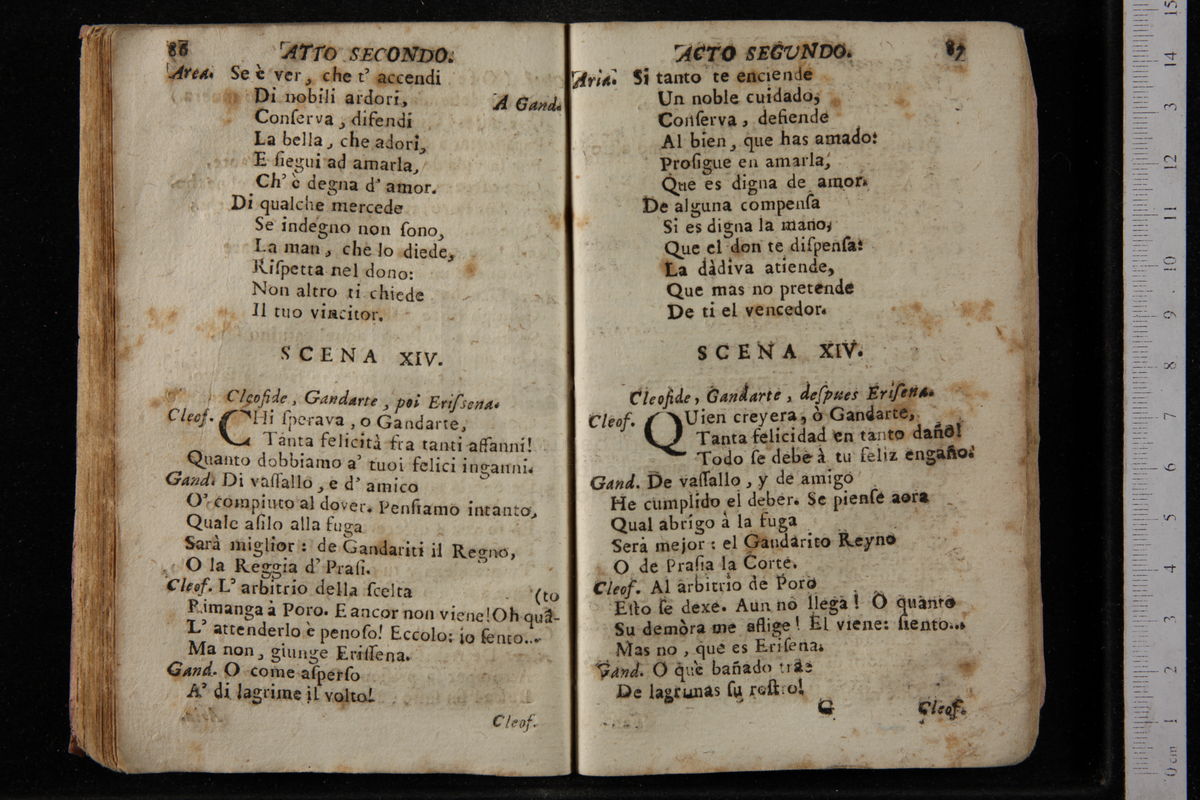 86 ATTO SECONDO.
Area. Se è ver, che t' accendi
Di nobili ardori, A Gand.
Conſerva, difendi
La bella, che adori,
E ſiegui ad amarla,
Ch' è degna d' amor.
Di qualche mercede
Se indegno non ſono,
La man, che lo diede,
Riſpetta nel dono:
Non altro ti chiede
Il tuo vincitor.
SCENA XIV.
Cleofide, Gandarte, poi Eriſſena.
Cleof. CHi ſperava, o Gandarte,
Tanta felicità fra tanti affanni!
Quanto dobbiamo a' tuoi felici inganni.
Gand. Di vaſſallo, e d' amico
O' compiuto al dover. Penſiamo intanto,
Quale aſilo alla fuga
Sarà miglior: de Gandariti il Regno,
O la Reggia d' Praſi.
Cleof. L' arbitrio della ſcelta (to
Rimanga à Poro. E ancor non viene! Oh quã-
L' attenderlo è penoſo! Eccolo: io ſento...
Ma non, giunge Eriſſena.
Gand. O come aſperſo
A' di lagrime il volto!
Cleof.
ACTO SEGUNDO. 87
Aria. Si tanto te enciende
Un noble cuidado,
Conſerva, defiende
Al bien, que has amado:
Proſigue en amarla,
Que es digna de amor.
De alguna compenſa
Si es digna la mano,
Que el don te diſpenſa:
La dàdiva atiende,
Que mas no pretende
De ti el vencedor.
SCENA XIV.
Cleofide, Gandarte, deſpues Eriſena.
Cleof. QUien creyera, ò Gandarte,
Tanta felicidad en tanto daño!
Todo ſe debe à tu feliz engaño.
Gand. De vaſſallo, y de amigo
He cumplido el deber. Se pienſe aora
Qual abrigo à la fuga
Serà mejor: el Gandarito Reyno
O de Praſia la Corte.
Cleof. Al arbitrio de Poro
Eſto ſe dexe. Aun no llega! O quanto
Su demòra me aflige! El viene: ſiento...
Mas no, que es Eriſena.
Gand. O què bañado trae
De lagrimas ſu roſtro!
G Cleof.